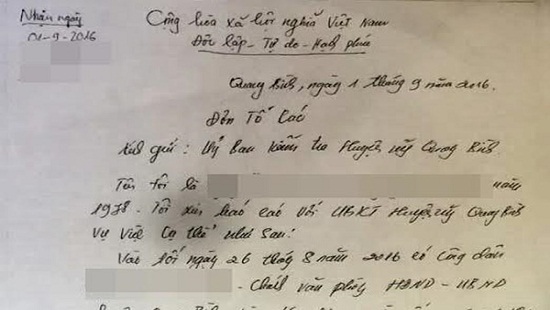 Nhận ngày
01-9-2016
Cộng hòa xã hội nghĩa Việt Nam
Độc lập - Tự do - Hạnh phúc
Quang Bình, ngày 1 tháng 9 năm 2016.
Đơn Tố Cáo
Kính gửi: Uỷ Ban kiểm tra Huyện uỷ Quang Bình.
Tên tôi là năm
1978. Tôi xin báo cáo với UBKT Huyện uỷ Quang Bình
Vụ Việc Cụ thể như sau!
Vào tối ngày 26 tháng 8 năm 2016 có Công dân
- Chánh văn phòng HĐND - UBND